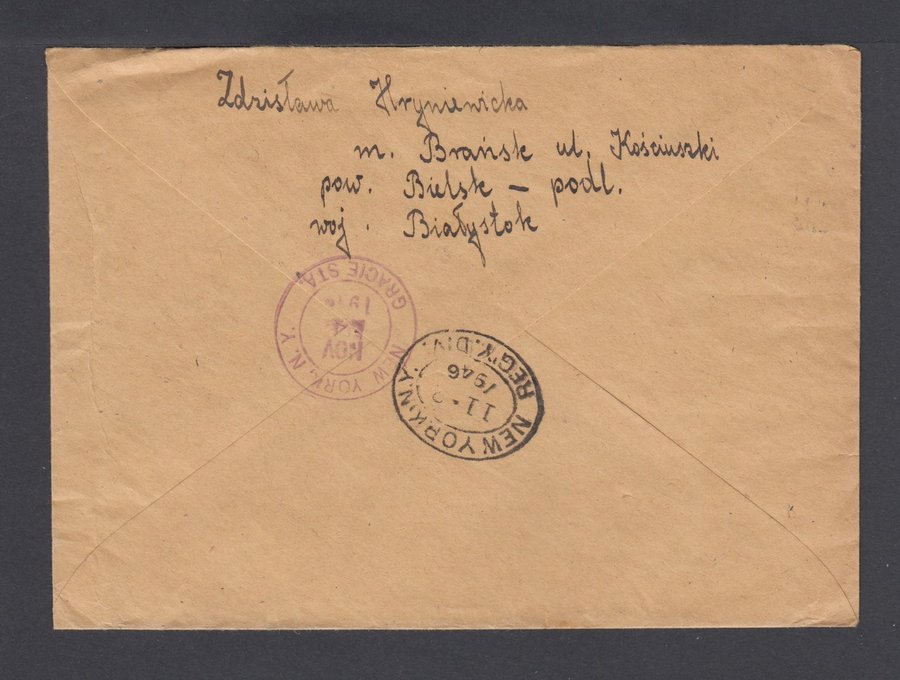 Zdzisława Hryniewicka
m. Brańsk ul. Kościuszki
pow. Bielsk – podl.
woj. Białystok
GRACIE STA.
NOV
NEW YORK, N.Y.
REG'Y. DIV.
1946
11-
NEW YORK, N.Y.